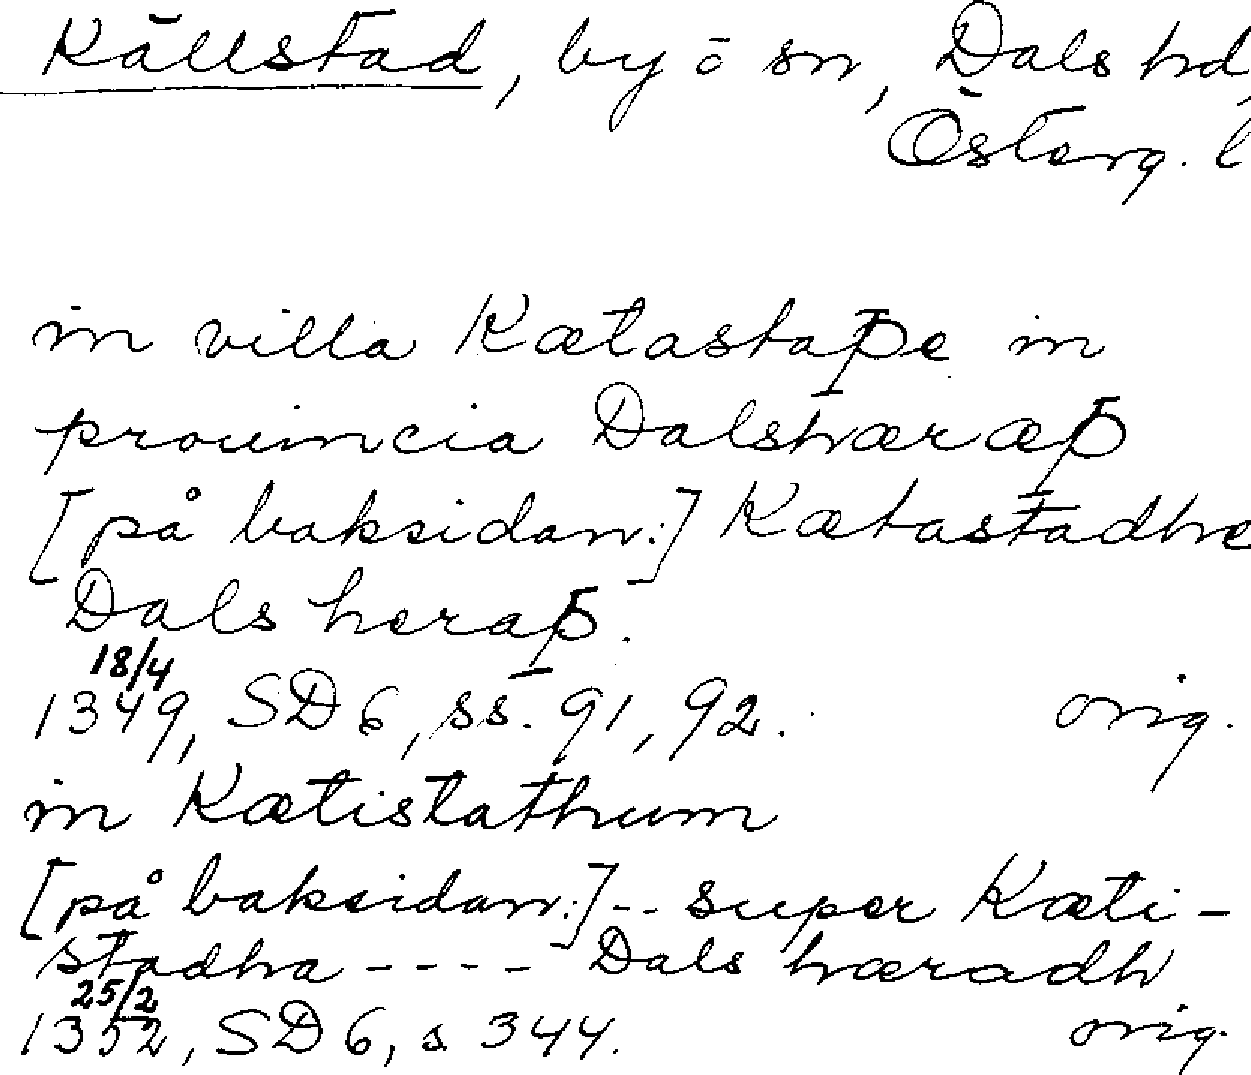 Källstad, by ō sn, Dals hd,
Österg. l
in villa Kætastaþe in
prouincia Dalshæræþ
[på baksidan:] Kætastadhe
Dals heraþ.
18/4
1349, SD 6, ss. 91, 92. orig.
in Kætistathum
[på baksidan:] -- super Kæti-
stadha ---- Dals hæradh
25/2
1352, SD 6, s 344. orig.